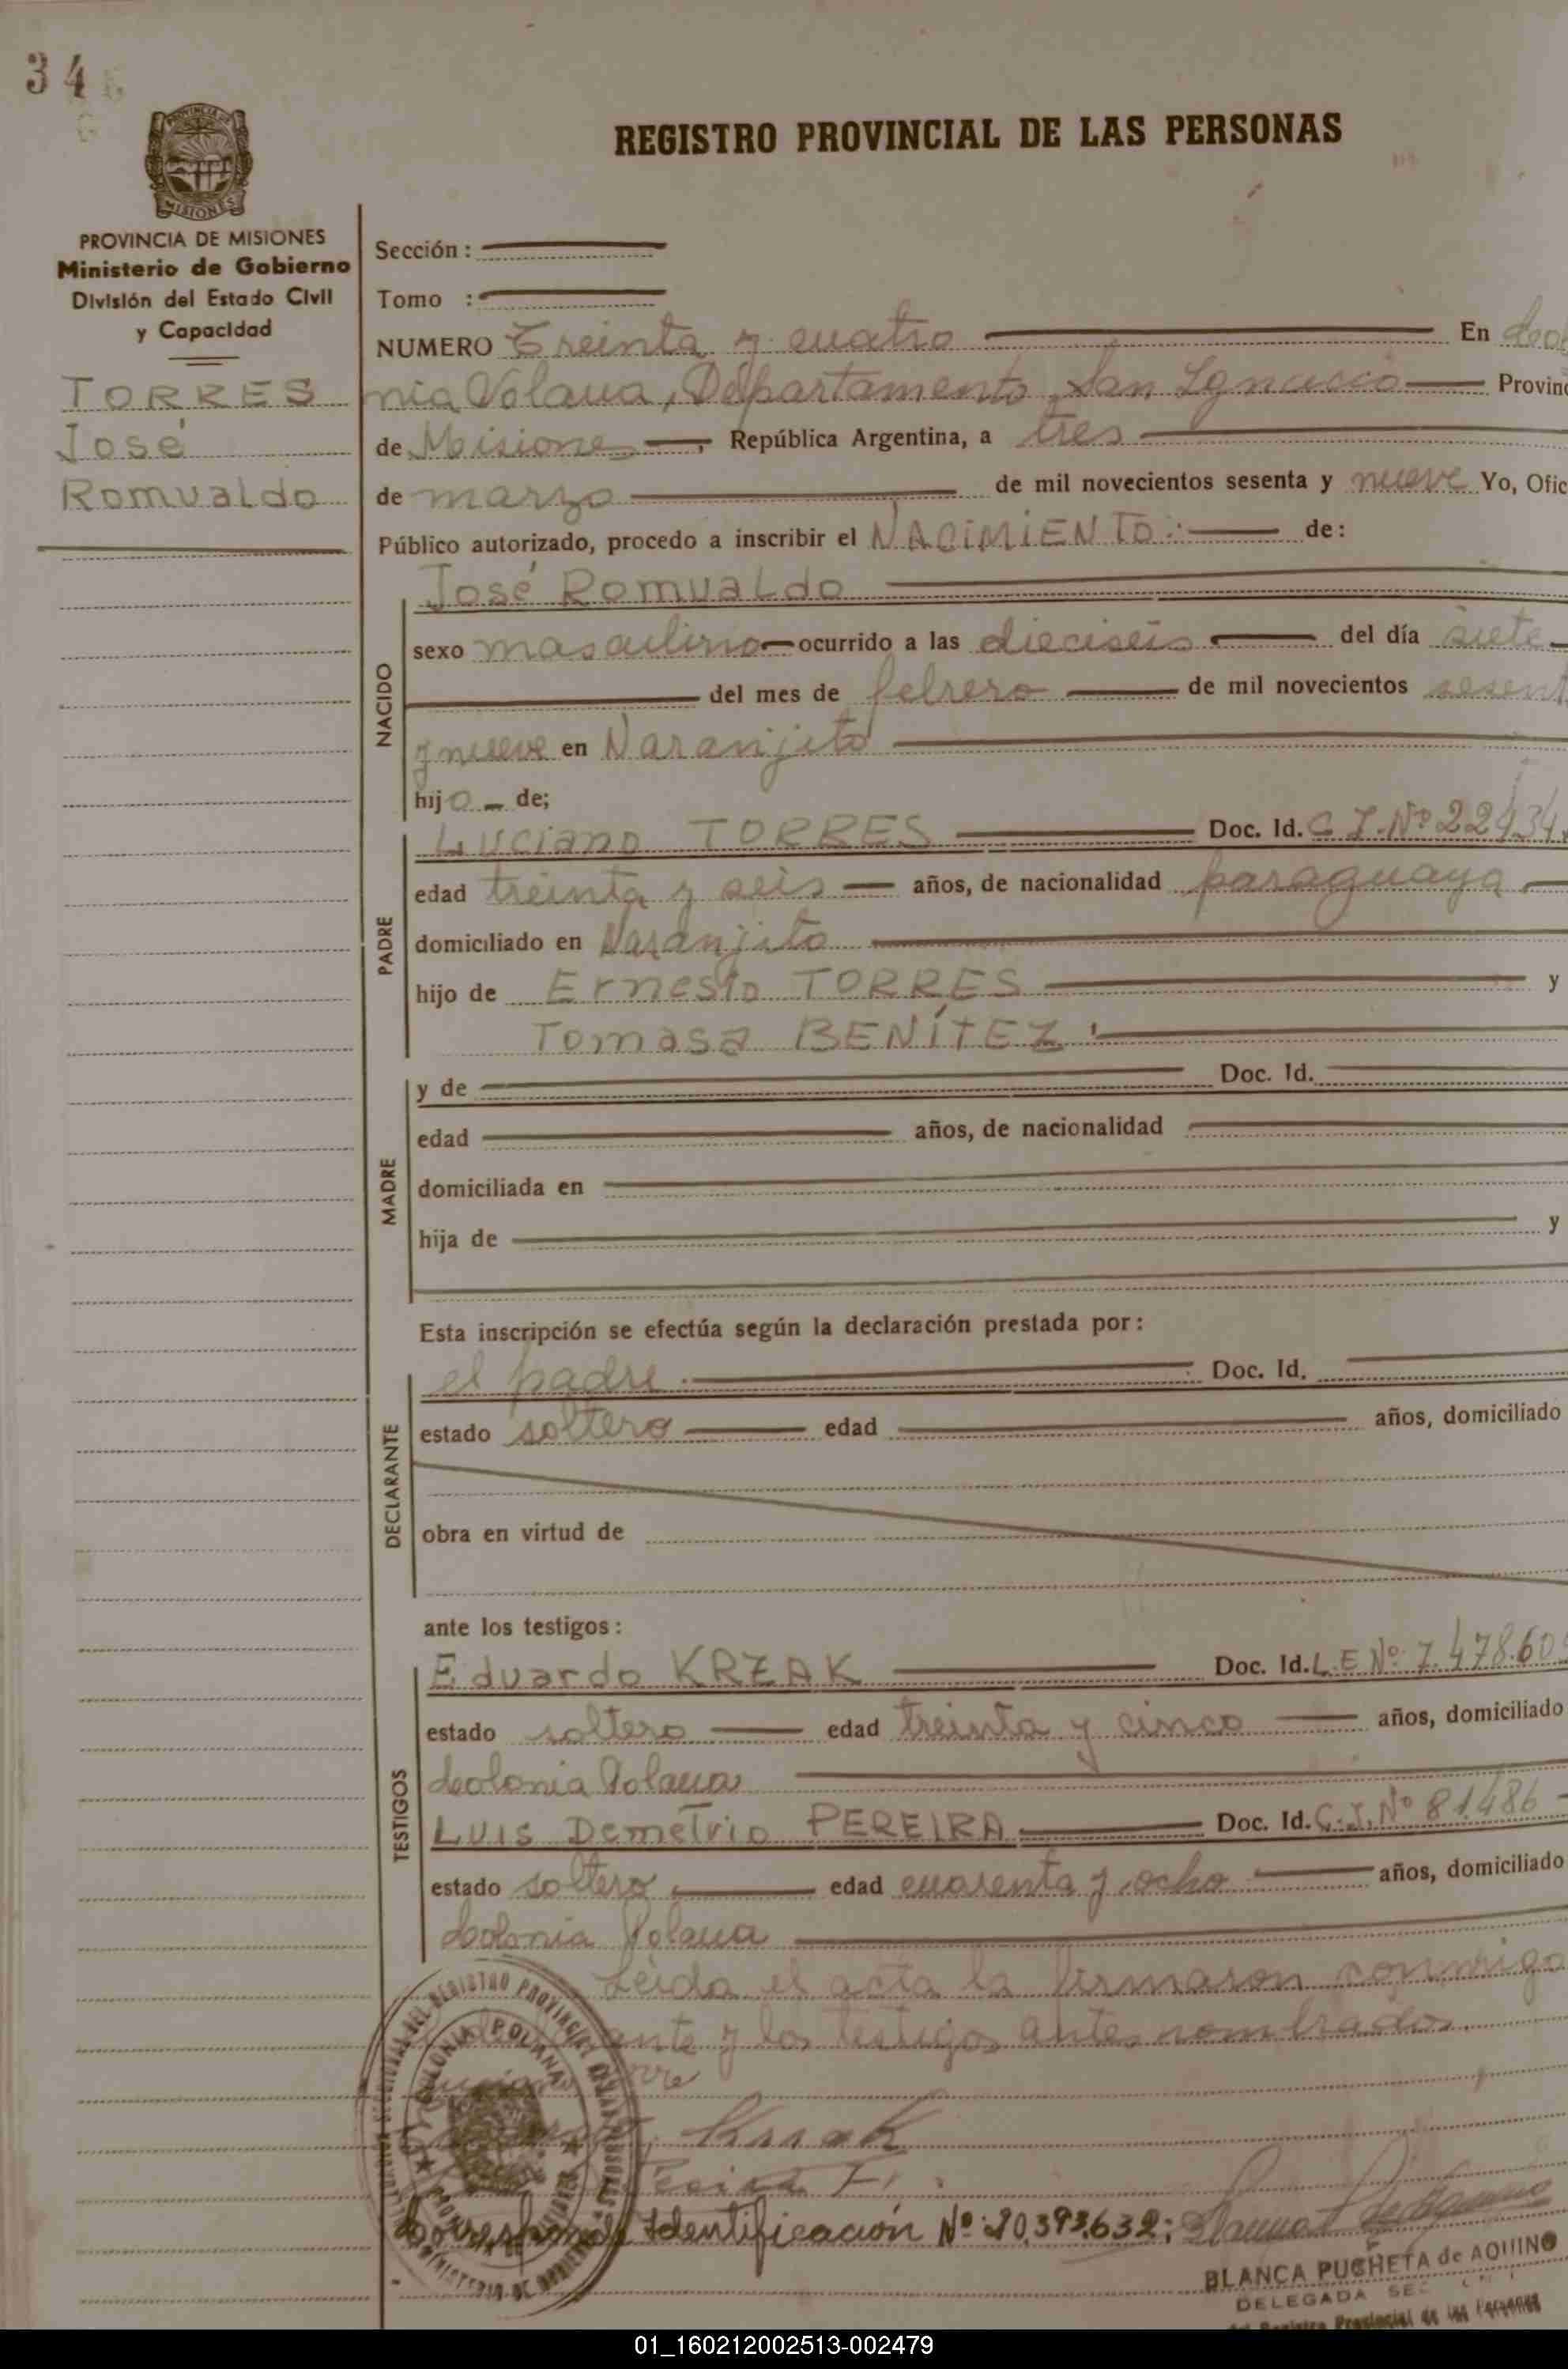 34
REGISTRO PROVINCIAL DE LAS PERSONAS
PROVINCIA DE MISIONES
Ministerio de Gobierno
División del Estado Civil
y Capacidad
TORRES
José
Romualdo
Sección:
Tomo :
NUMERO Treinta y cuatro En Colo
nia Polaua, Departamento San Ignacio Provinc
de Misiones, República Argentina, a tres
de marzo de mil novecientos sesenta y nueve Yo, Ofic
Público autorizado, procedo a inscribir el NACIMIENTO: de:
NACIDO
José Romualdo
sexo masculino ocurrido a las dieciseis del día siete
del mes de febrero de mil novecientos sesent
y nueve en Naranjito
hijo de;
PADRE
Luciano TORRES Doc. Id. C.I. Nº 22434
edad treinta y seis años, de nacionalidad paraguaya
domiciliado en Naranjito
hijo de Ernesto TORRES y
Tomasa BENÍTEZ
MADRE
y de Doc. Id.
edad años, de nacionalidad
domiciliada en
hija de y
Esta inscripción se efectúa según la declaración prestada por:
DECLARANTE
el padre Doc. Id.
estado soltero edad años, domiciliado
obra en virtud de
ante los testigos:
TESTIGOS
Eduardo KRZAK Doc. Id. L.E Nº 7.478.60
estado soltero edad treinta y cinco años, domiciliado
Colonia Polaua
Luis Demetrio PEREIRA Doc. Id. C.I. Nº 81.486
estado soltero edad cuarenta y ocho años, domiciliado
Colonia Polaua
Leída el acta la firmaron conmigo
ante y los testigos antes nombrados.
COLONIA POLANA
Corresponde Identificación Nº: 20.393.632;
BLANCA PUCHETA de AQUINO
DELEGADA
del Registro Provincial de las Personas
01_160212002513-002479